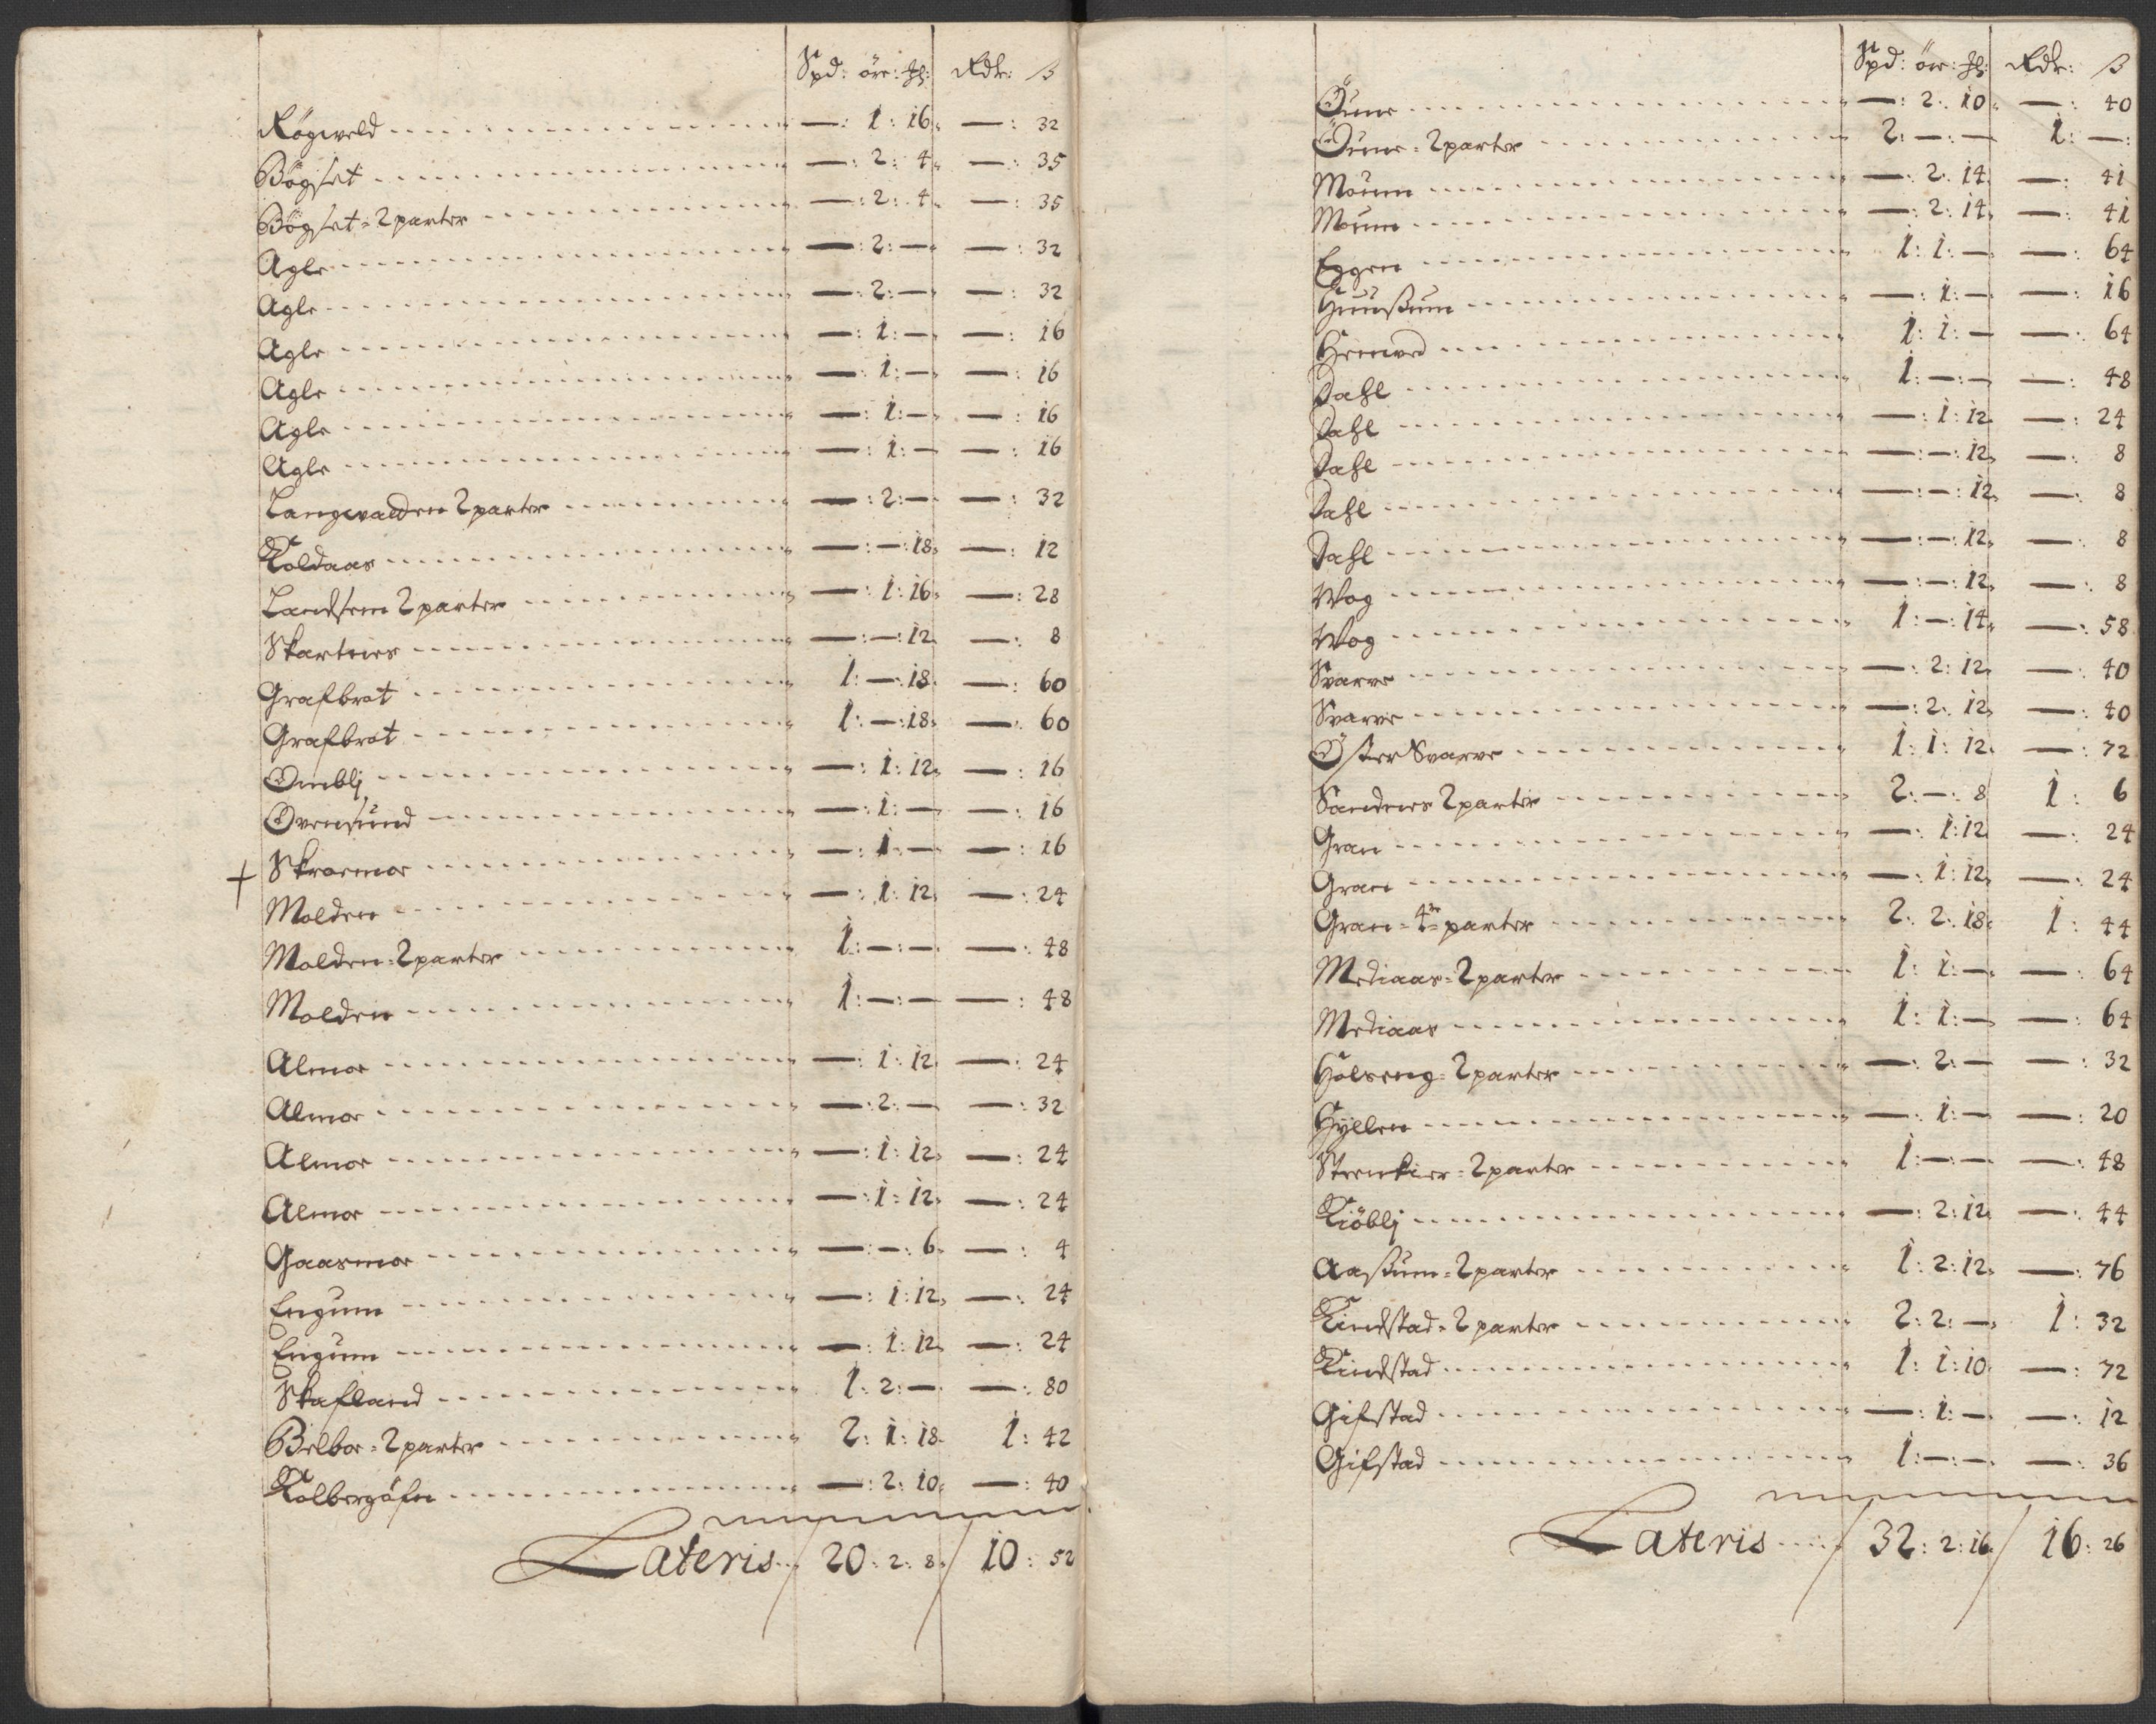 Spd: öre: ℔: Rdlr: ß
Røgweld — : 1 : 16 — : 32
Bögset — : 2 : 4 — : 35
Bögset = 2 parter — : 2 : 4 — : 35
Agle — : 2 : — — : 32
Agle — : 2 : — — : 32
Agle — : 1 : — — : 16
Agle — : 1 : — — : 16
Agle — : 1 : — — : 16
Agle — : 1 : — — : 16
Langvadden 2 parter — : 2 : — — : 32
Koldaas — : — : 18 — : 12
Landsem 2 parter — : 1 : 16 — : 28
Skartnes — : — : 12 — : 8
Grafbrot 1 : — : 18 — : 60
Grafbrot 1 : — : 18 — : 60
Omblj — : 1 : 12 — : 16
Ovensund — : 1 : — — : 16
Skroemoe — : 1 : — — : 16
+ Molden — : 1 : 12 — : 24
Molden = 2 parter 1 : — : — — : 48
Molden 1 : — : — — : 48
Almoe — : 1 : 12 — : 24
Almoe — : 2 : — — : 32
Almoe — : 1 : 12 — : 24
Almoe — : 1 : 12 — : 24
Gaasmoe — : — : 6 — : 4
Engum — : 1 : 12 — : 24
Engum — : 1 : 12 — : 24
Skafland 1 : 2 : — — : 80
Belboe = 2 parter 2 : 1 : 18 1 : 42
Kolbergöfn — : 2 : 10 — : 40
Lateris 20 : 2 : 8 10 : 52
Spd: öre: ℔: Rdlr: ß
Öune — : 2 : 10 — : 40
Öune = 2 parter 2 : — : — 1 : — :
Moum — : 2 : 14 — : 41
Moum — : 2 : 14 — : 41
Eggen 1 : 1 : — — : 64
Huußum — : 1 : — — : 16
Hemved 1 : 1 : — — : 64
Dahl 1 : — : — — : 48
Dahl — : 1 : 12 — : 24
Dahl — : — : 12 — : 8
Dahl — : — : 12 — : 8
Dahl — : — : 12 — : 8
Wog — : — : 12 — : 8
Wog 1 : — : 14 — : 58
Svarve — : 2 : 12 — : 40
Svarve — : 2 : 12 — : 40
Öster Svarve 1 : 1 : 12 — : 72
Sandnes 2 parter 2 : — : 8 1 : 6
Gran — : 1 : 12 — : 24
Gran — : 1 : 12 — : 24
Gran = 4re parter 2 : 2 : 18 1 : 44
Mediaas = 2 parter 1 : 1 : — — : 64
Mediaas 1 : 1 : — — : 64
Holseng = 2 parter — : 2 : — — : 32
Hyllen — : 1 : — — : 20
Steenkier = 2 parter 1 : — : — — : 48
Kiöblj — : 2 : 12 — : 44
Aaßum = 2 parter 1 : 2 : 12 — : 76
Kindstad = 2 parter 2 : 2 : — 1 : 32
Kindstad 1 : 1 : 10 — : 72
Gifstad — : 1 : — — : 12
Gifstad 1 : — : — — : 36
Lateris 32 : 2 : 16 16 : 26